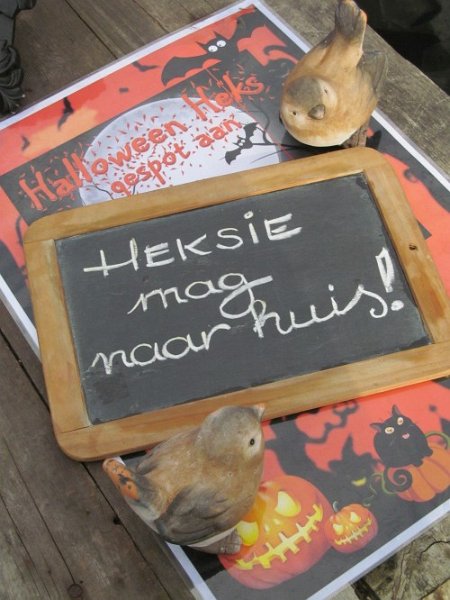 Halloween Heks
gespot aan
HEKSIE
mag
naar huis!